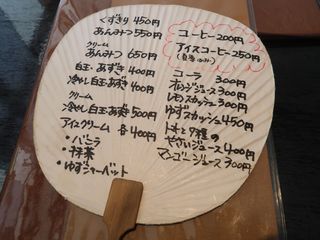 くずきり 450円
あんみつ 550円
クリーム
あんみつ 650円
白玉・あずき 400円
冷やし白玉・あずき 400円
クリーム
冷やし白玉・あずき 500円
アイスクリーム 各400円
・バニラ
・抹茶
・ゆずシャーベット
コーヒー 200円
アイスコーヒー 250円
コーラ 300円
オレンジジュース 300円
レモンスカッシュ 300円
ゆずスカッシュ 450円
トマトと9種の
やさいジュース 400円
マンゴージュース 300円